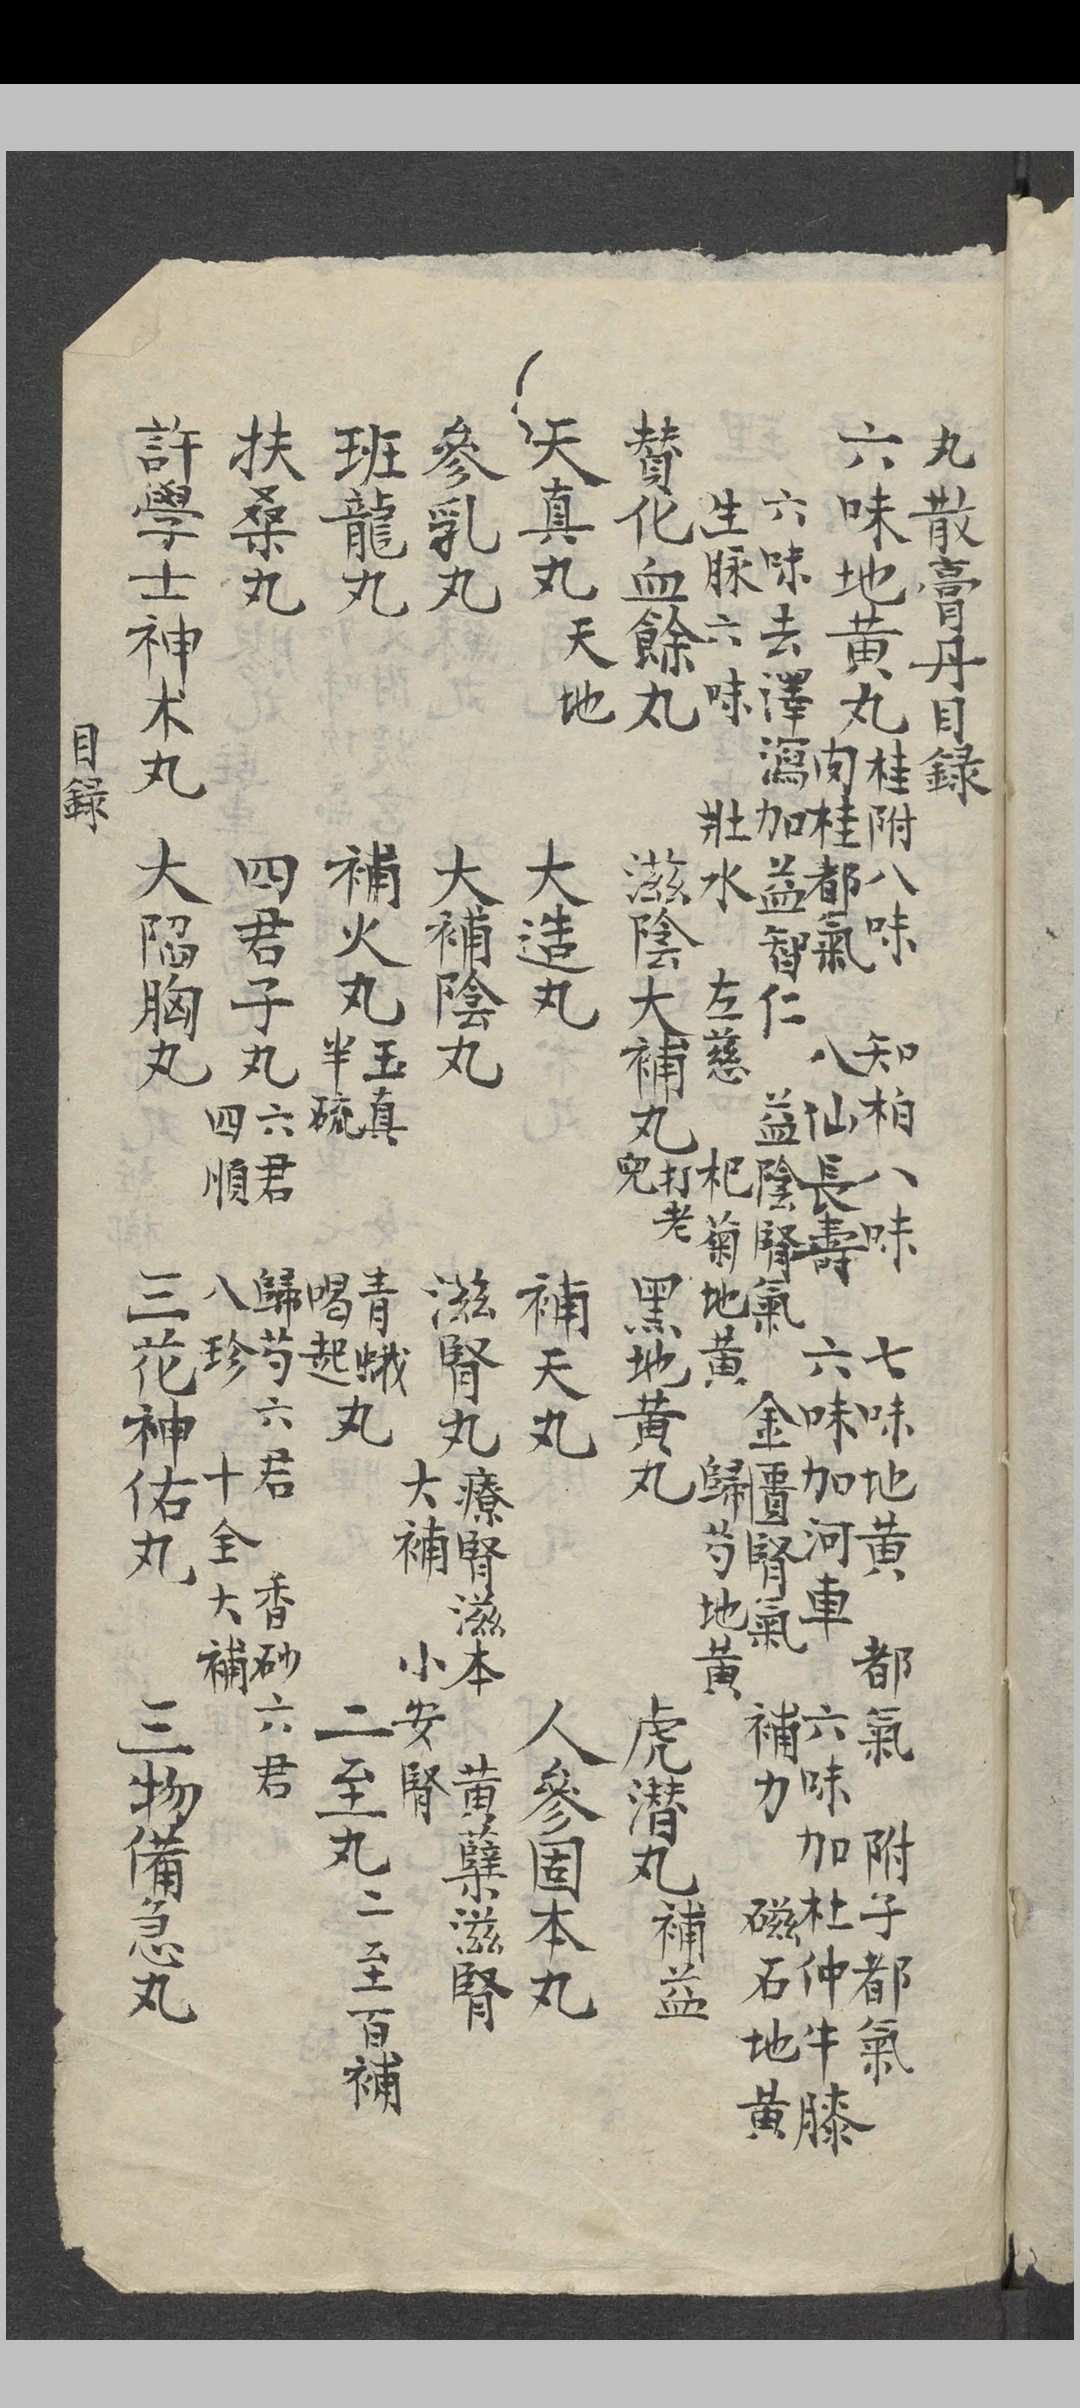 丸散膏丹目録
六味地黄丸
桂附八味 知柏八味 七味地黄 都氣 附子都氣
肉桂都氣 八仙長壽 六味加河車 六味加杜仲牛膝
六味去澤瀉加益智仁 益陰腎氣 金匱腎氣 補力 磁石地黄
生脉六味 壯水 左慈 杞菊地黄 歸芍地黄
賛化血餘丸 滋陰大補丸 打老兒 黑地黄丸 虎潜丸 補益
天真丸 天地 大造丸 補天丸 人參固本丸
參乳丸 大補陰丸 滋腎丸 療腎滋本 黄蘗滋腎
大補 小安腎
班龍丸 補火丸 玉真 半硫 青蛾 喝起丸 二至丸 二至百補
扶桑丸 四君子丸 六君 歸芍六君 香砂六君
四順 八珍 十全大補
許學士神木丸 大陷胸丸 三花神佑丸 三物備急丸
目録